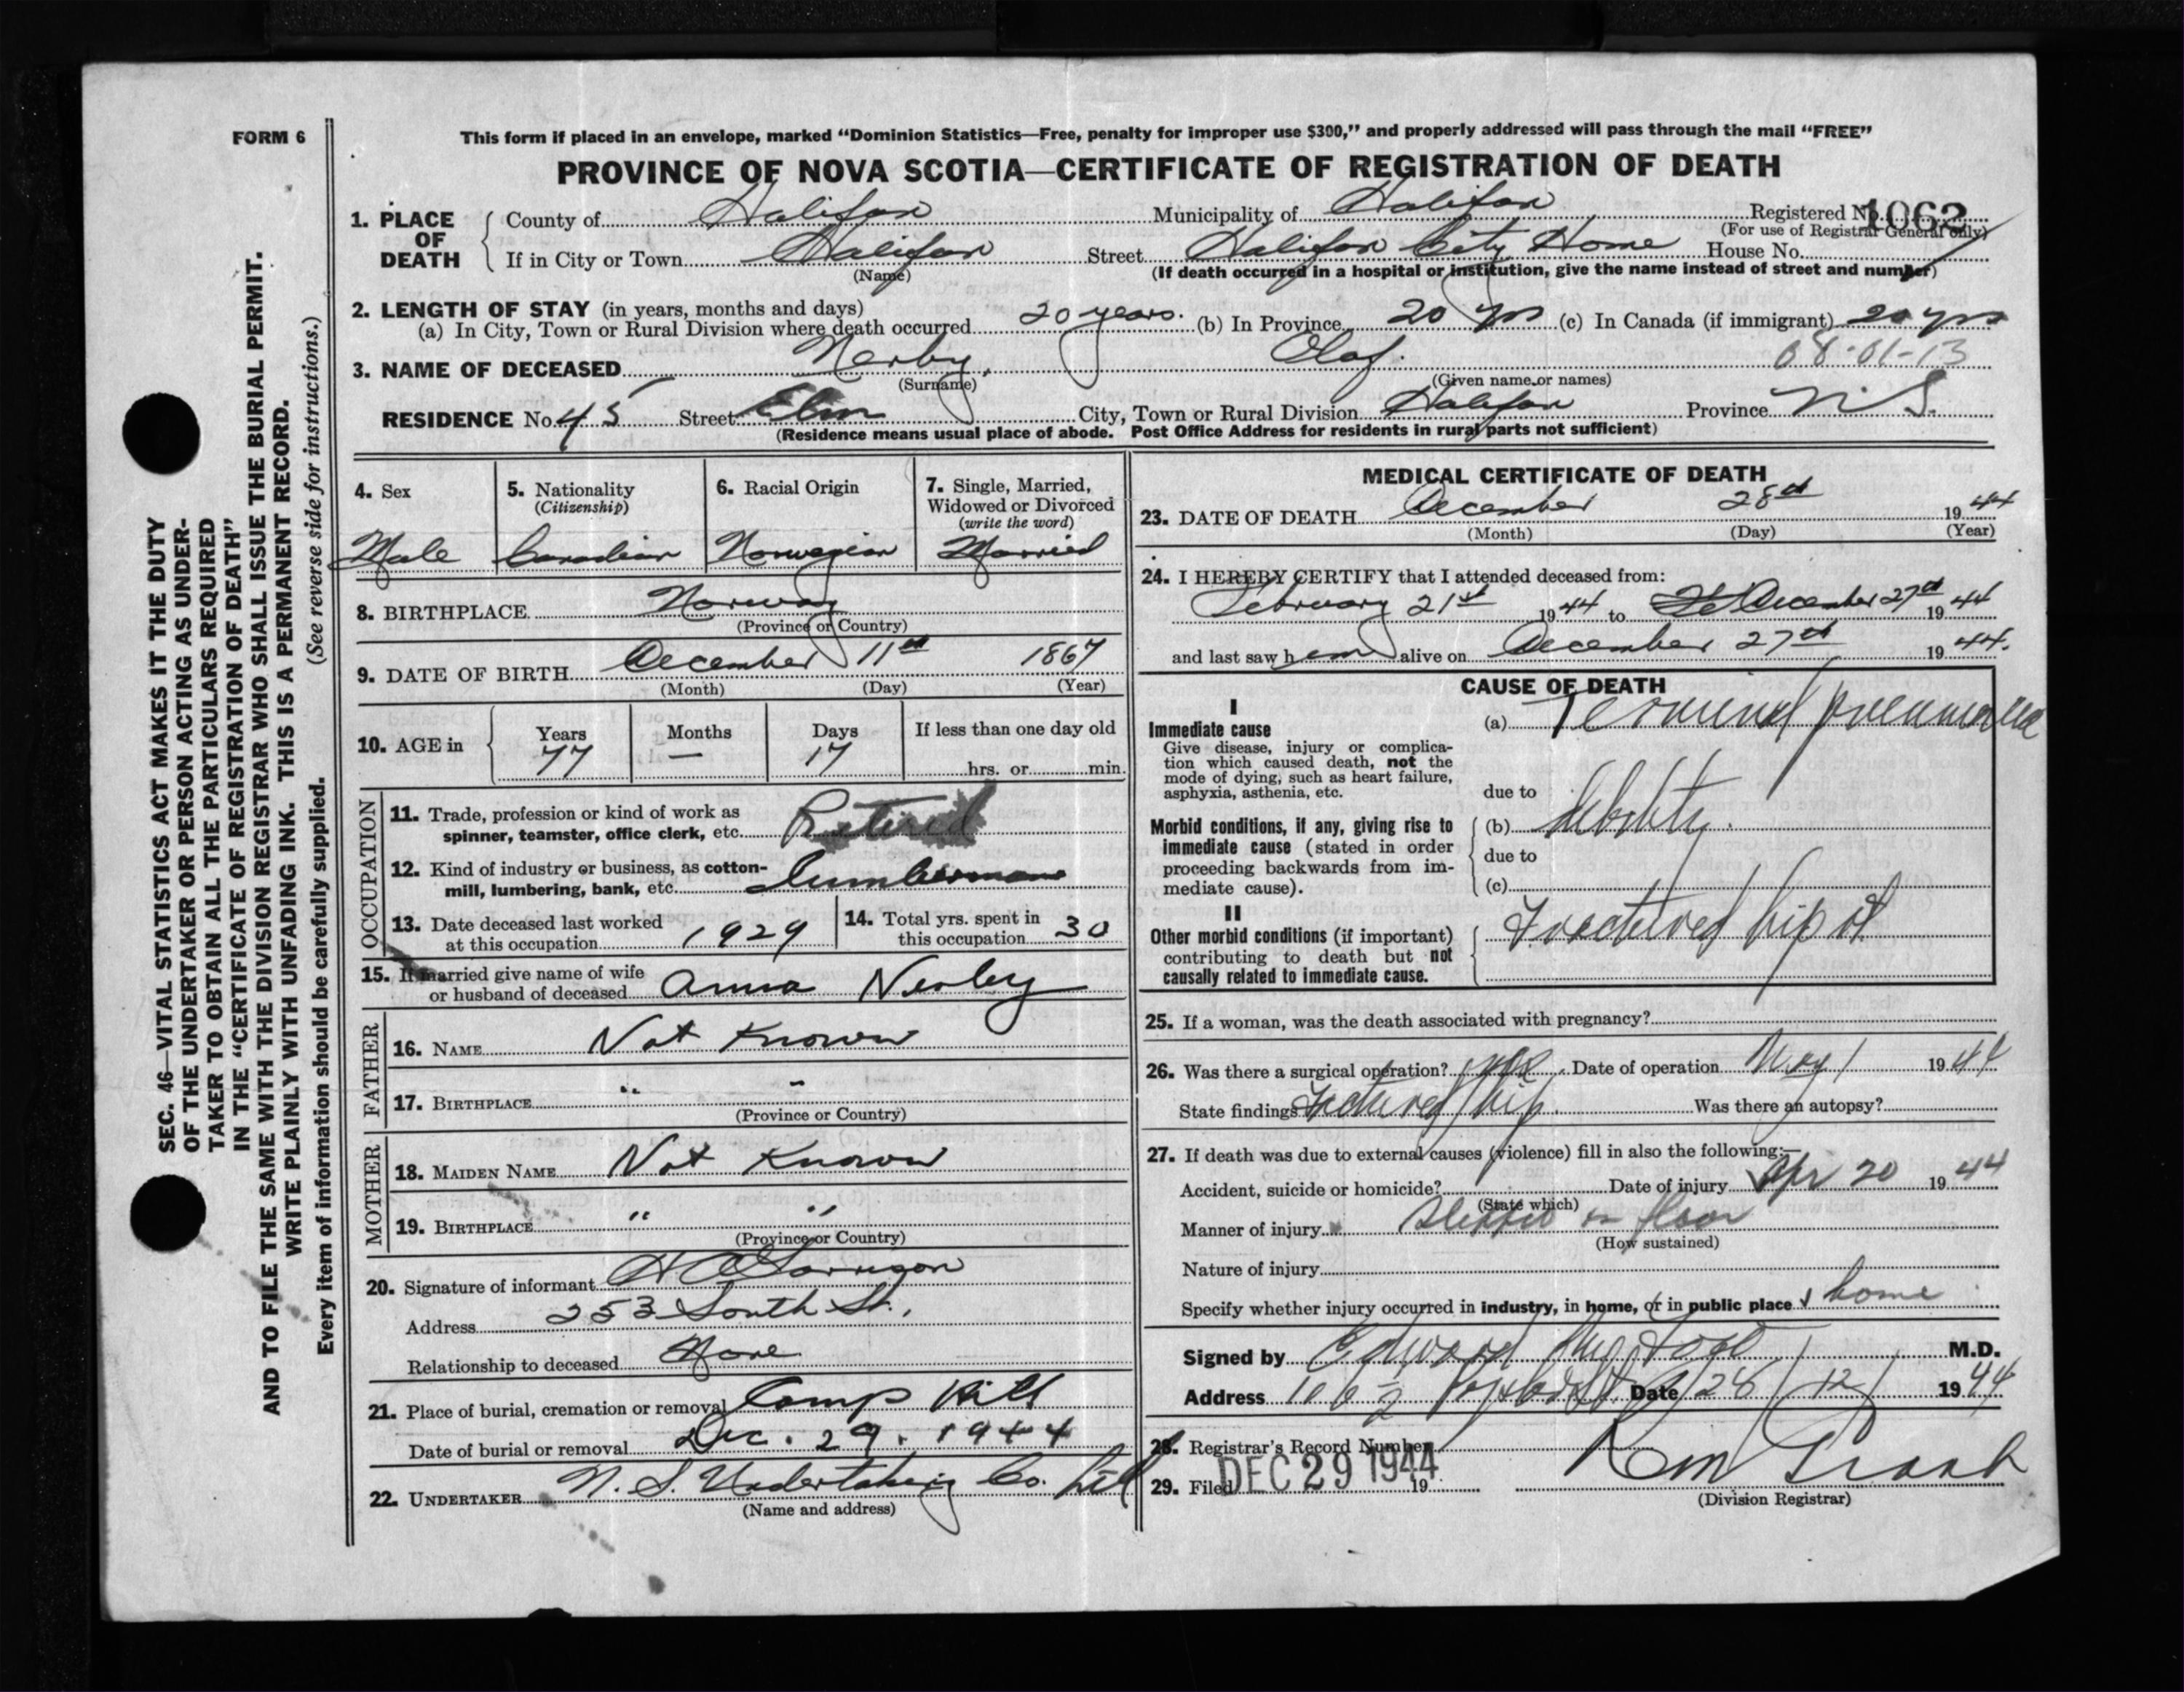 FORM 6
This form if placed in an envelope, marked "Dominion Statistics—Free, penalty for improper use $300," and properly addressed will pass through the mail "FREE"
PROVINCE OF NOVA SCOTIA—CERTIFICATE OF REGISTRATION OF DEATH
1. PLACE OF DEATH
County of Halifax Municipality of Halifax Registered No. 1062
(For use of Registrar General only)
If in City or Town Halifax Street Halifax City Home House No.
(Name) (If death occurred in a hospital or institution, give the name instead of street and number)
2. LENGTH OF STAY (in years, months and days)
(a) In City, Town or Rural Division where death occurred 20 years. (b) In Province 20 yrs (c) In Canada (if immigrant) 20 yrs
08-01-13
3. NAME OF DECEASED Nerby, Olaf.
(Surname) (Given name or names)
RESIDENCE No. 45 Street Elm City, Town or Rural Division Halifax Province N.S.
(Residence means usual place of abode. Post Office Address for residents in rural parts not sufficient)
4. Sex
Male
5. Nationality
(Citizenship)
Canadian
6. Racial Origin
Norwegian
7. Single, Married,
Widowed or Divorced
(write the word)
Married
8. BIRTHPLACE Norway
(Province or Country)
9. DATE OF BIRTH December 11th 1867
(Month) (Day) (Year)
10. AGE in Years 77 Months — Days 17 If less than one day old
hrs. or min.
OCCUPATION
11. Trade, profession or kind of work as
spinner, teamster, office clerk, etc. Retired
12. Kind of industry or business, as cotton-
mill, lumbering, bank, etc. Lumberman
13. Date deceased last worked
at this occupation 1929
14. Total yrs. spent in
this occupation 30
15. If married give name of wife
or husband of deceased Anna Nerby
FATHER
16. NAME Not Known
17. BIRTHPLACE " "
(Province or Country)
MOTHER
18. MAIDEN NAME Not Known
19. BIRTHPLACE " "
(Province or Country)
20. Signature of informant
Address 253 South St.,
Relationship to deceased None
21. Place of burial, cremation or removal Camp Hill
Date of burial or removal Dec. 29, 1944
22. UNDERTAKER N. S. Undertaking Co. Ltd
(Name and address)
MEDICAL CERTIFICATE OF DEATH
23. DATE OF DEATH December 28th 1944
(Month) (Day) (Year)
24. I HEREBY CERTIFY that I attended deceased from:
February 21st 1944 to December 27th 1944
and last saw h im alive on December 27th 1944.
CAUSE OF DEATH
I
Immediate cause
Give disease, injury or complica-
tion which caused death, not the
mode of dying, such as heart failure,
asphyxia, asthenia, etc.
(a) Terminal pneumonia
due to
Morbid conditions, if any, giving rise to
immediate cause (stated in order
proceeding backwards from im-
mediate cause).
(b) debility.
due to
(c)
II
Other morbid conditions (if important)
contributing to death but not
causally related to immediate cause.
Fractured hip
25. If a woman, was the death associated with pregnancy?
26. Was there a surgical operation? yes. Date of operation May 1 1944
State findings Fractured hip. Was there an autopsy?
27. If death was due to external causes (violence) fill in also the following:—
Accident, suicide or homicide? Date of injury Apr 20 1944
(State which)
Manner of injury Slipped on floor
(How sustained)
Nature of injury
Specify whether injury occurred in industry, in home, or in public place home
Signed by Edward M.D.
Address Date 28/12/ 1944
28. Registrar's Record Number
29. Filed DEC 29 1944 19
(Division Registrar)
SEC. 46—VITAL STATISTICS ACT MAKES IT THE DUTY
OF THE UNDERTAKER OR PERSON ACTING AS UNDER-
TAKER TO OBTAIN ALL THE PARTICULARS REQUIRED
IN THE "CERTIFICATE OF REGISTRATION OF DEATH"
AND TO FILE THE SAME WITH THE DIVISION REGISTRAR WHO SHALL ISSUE THE BURIAL PERMIT.
WRITE PLAINLY WITH UNFADING INK. THIS IS A PERMANENT RECORD.
Every item of information should be carefully supplied. (See reverse side for instructions.)